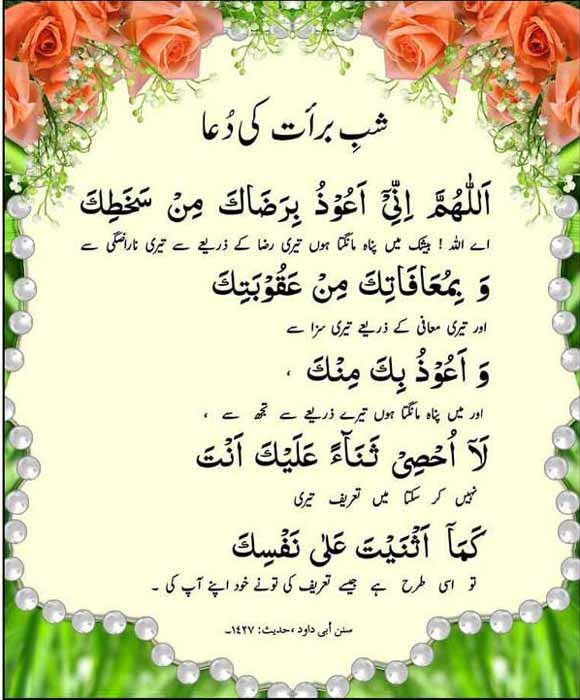 شبِ برأت کی دُعا
اَللّٰهُمَّ اِنِّیْٓ اَعُوْذُ بِرَضَاكَ مِنْ سَخَطِكَ
اے اللہ ! بیشک میں پناہ مانگتا ہوں تیری رضا کے ذریعے سے تیری ناراضگی سے
وَ بِمُعَافَاتِكَ مِنْ عَقُوْبَتِكَ
اور تیری معافی کے ذریعے تیری سزا سے
وَ اَعُوْذُ بِكَ مِنْكَ ،
اور میں پناہ مانگتا ہوں تیرے ذریعے سے تجھ سے ،
لَآ اُحْصِیْ ثَنَآءً عَلَیْكَ اَنْتَ
نہیں کر سکتا میں تعریف تیری
كَمَآ اَثْنَیْتَ عَلٰی نَفْسِكَ
تو اسی طرح ہے جیسے تعریف کی تونے خود اپنے آپ کی ۔
سنن أبی داود ،حدیث: ۱۴۲۷۔